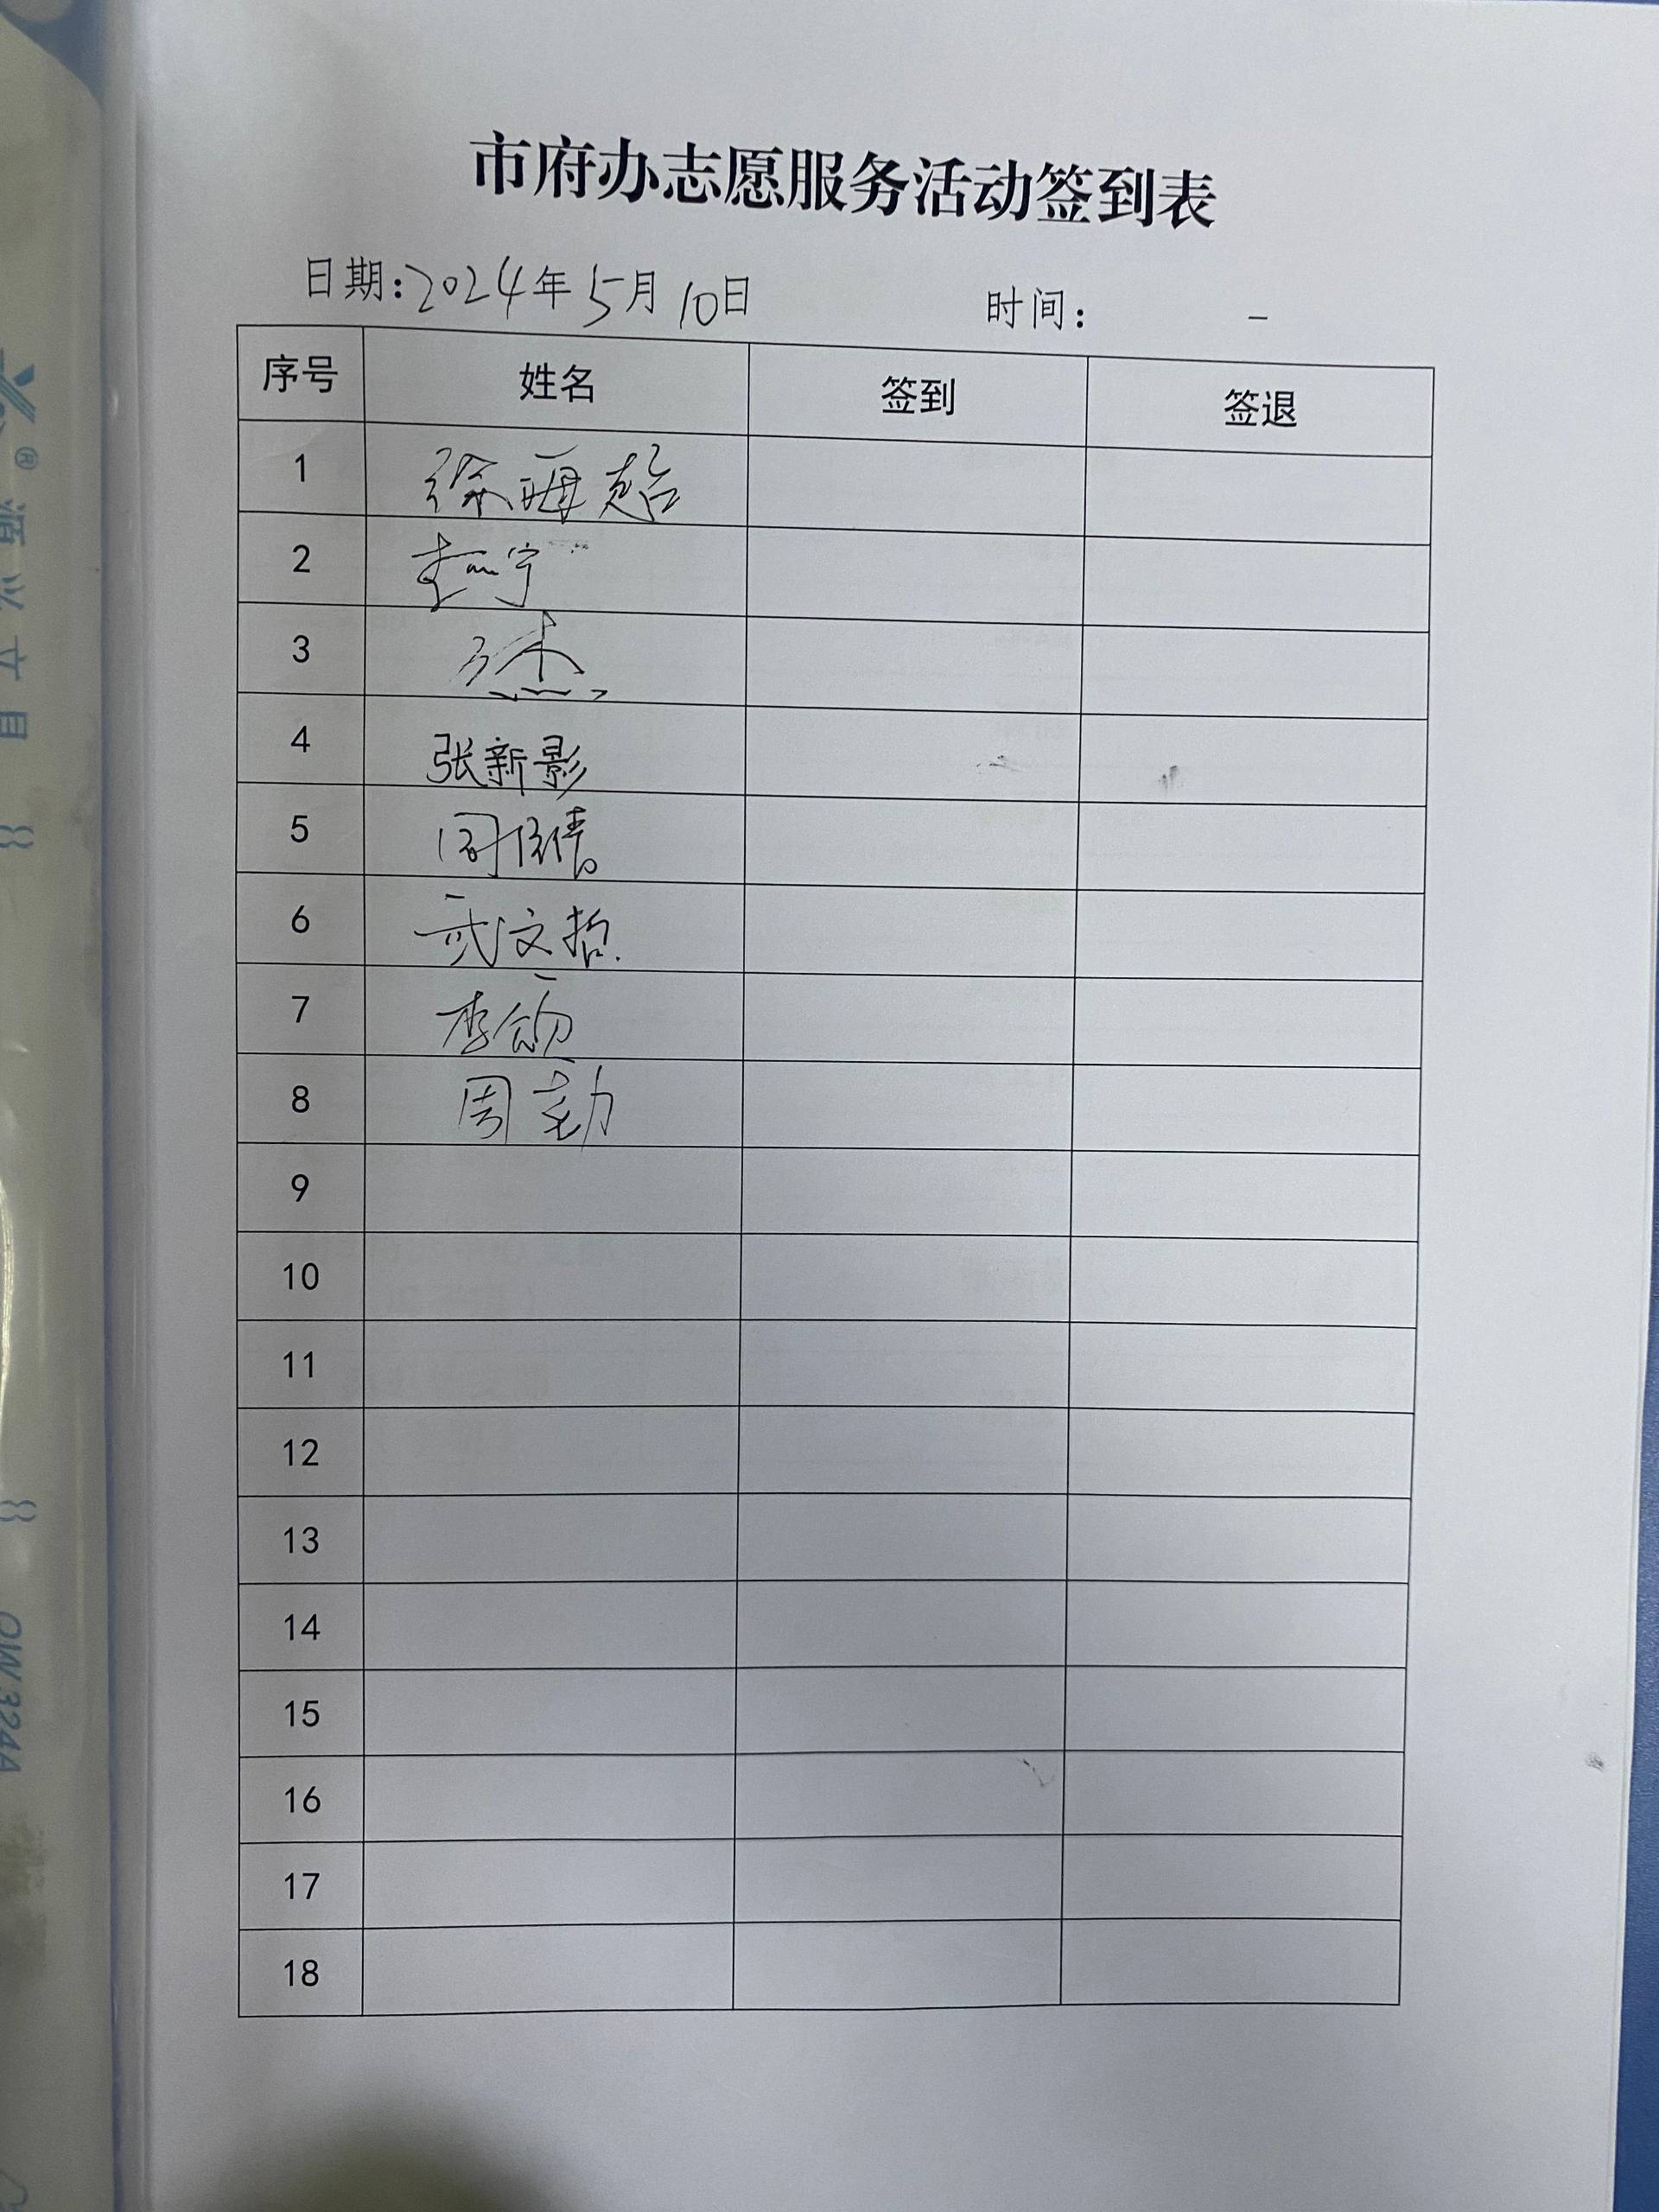 市府办志愿服务活动签到表
日期:2024年5月10日 时间: –
序号 姓名 签到 签退
1 徐
2 宁
3
4 张新影
5 倩
6 武文哲
7 李
8 周勃
9
10
11
12
13
14
15
16
17
18
QW324A